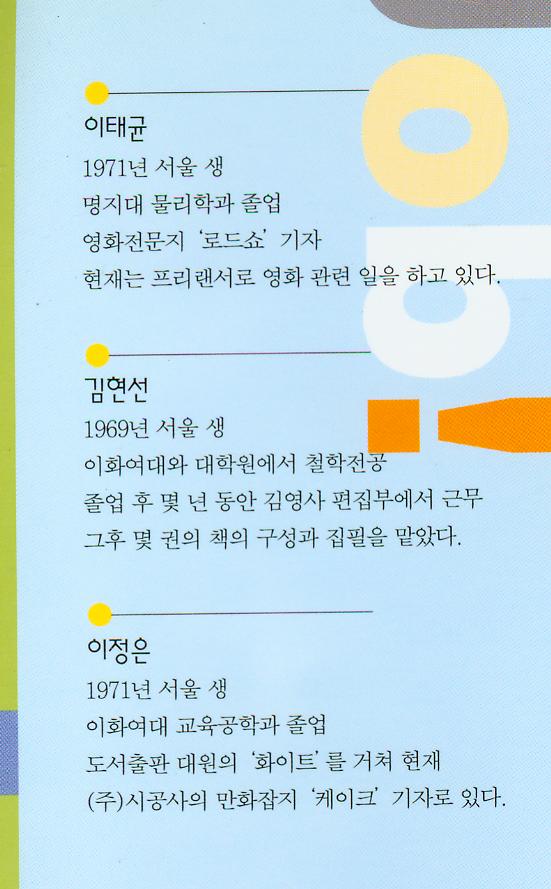 이태균
1971년 서울 생
명지대 물리학과 졸업
영화전문지 ‘로드쇼’ 기자
현재는 프리랜서로 영화 관련 일을 하고 있다.
김현선
1969년 서울 생
이화여대와 대학원에서 철학전공
졸업 후 몇 년 동안 김영사 편집부에서 근무
그후 몇 권의 책의 구성과 집필을 맡았다.
이정은
1971년 서울 생
이화여대 교육공학과 졸업
도서출판 대원의 ‘화이트’를 거쳐 현재
(주)시공사의 만화잡지 ‘케이크’ 기자로 있다.
go!